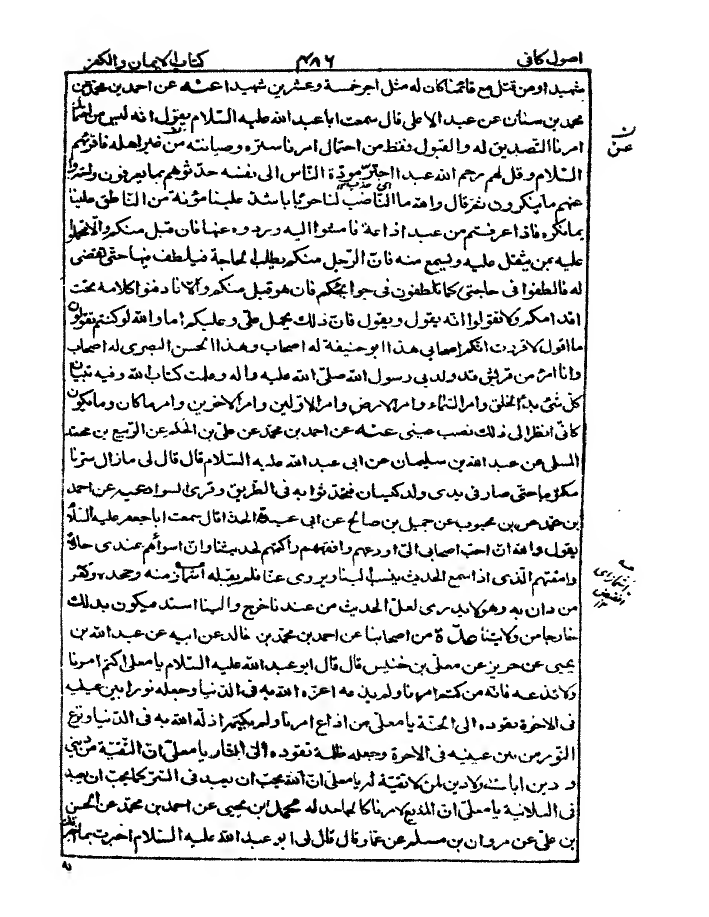 اصول كافى ٤٨٦ كتاب الايمان والكفر
شهيدا ومن قتل مع قائمنا كان له مثل اجر خمسة وعشرين شهيدا عنه عن احمد بن محمد عن
محمد بن سنان عن عبد الاعلى قال سمعت ابا عبد الله عليه السلام يقول انه ليس من احتمال
امرنا التصديق له والقبول فقط من احتمال امرنا ستره وصيانته من غير اهله فاقرئهم
السلام وقل لهم رحم الله عبدا اجتر مودة الناس الى نفسه حدثوهم بما يعرفون واستروا
عنهم ما ينكرون ثم قال والله ما الناصب لنا حربا باشد علينا مؤنة من الناطق علينا
بما نكره فاذا عرفتم من عبد اذاعة فامشوا اليه وردوه عنها فان قبل منكم والا فتحملوا
عليه بمن يثقل عليه ويسمع منه فان الرجل منكم يطلب الحاجة فيلطف فيها حتى تقضى
له فالطفوا فى حاجتى كما تلطفون فى حوايجكم فان هو قبل منكم والا فادفنوا كلامه تحت
اقدامكم ولا تقولوا انه يقول ويقول فان ذلك يحمل على وعليكم اما والله لو كنتم تقولون
ما اقول لاقررت انكم اصحابى هذا ابو حنيفة له اصحاب وهذا الحسن البصرى له اصحاب
وانا امرؤ من قريش قد ولدنى رسول الله صلى الله عليه واله وعلمت كتاب الله وفيه تبيان
كل شئ بدأ الخلق وامر السماء وامر الارض وامر الاولين وامر الاخرين وامر ما كان وما يكون
كانى انظر الى ذلك نصب عينى عنه عن احمد بن محمد عن على بن الحكم عن الربيع بن محمد
المسلى عن عبد الله بن سليمان عن ابى عبد الله عليه السلام قال قال لى ما زال سرنا
مكتوما حتى صار فى يدى ولد كيسان فتحدثوا به فى الطريق وقرى السواد عنه عن احمد
بن محمد عن بن محبوب عن جميل بن صالح عن ابى عبيدة الحذاء قال سمعت ابا جعفر عليه السلام
يقول والله ان احب اصحابى الى اورعهم وافقههم واكتمهم لحديثنا وان اسوأهم عندى حالا
وامقتهم الذى اذا سمع الحديث ينسب الينا ويروى عنا فلم يقبله اشمأز منه وجحده وكفر
من دان به وهو لا يدرى لعل الحديث من عندنا خرج والينا اسند فيكون بذلك
خارجا من ولايتنا عدة من اصحابنا عن احمد بن محمد بن خالد عن ابيه عن عبد الله بن
يحيى عن حريز عن معلى بن خنيس قال قال ابو عبد الله عليه السلام يا معلى اكتم امرنا
ولا تذعه فانه من كتم امرنا ولم يذعه اعزه الله به فى الدنيا وجعله نورا بين عينيه
فى الاخرة تقوده الى الجنة يا معلى من اذاع امرنا ولم يكتمه اذله الله به فى الدنيا ونزع
النور من بين عينيه فى الاخرة وجعله ظلمة تقوده الى النار يا معلى ان التقية من دينى
و دين ابائى ولا دين لمن لا تقية له يا معلى ان الله يحب ان يعبد فى السر كما يحب ان يعبد
فى العلانية يا معلى ان المذيع لامرنا كالجاحد له محمد بن يحيى عن احمد بن محمد عن الحسن
بن على عن مروان بن مسلم عن عمار قال قال لى ابو عبد الله عليه السلام اخبرت بما